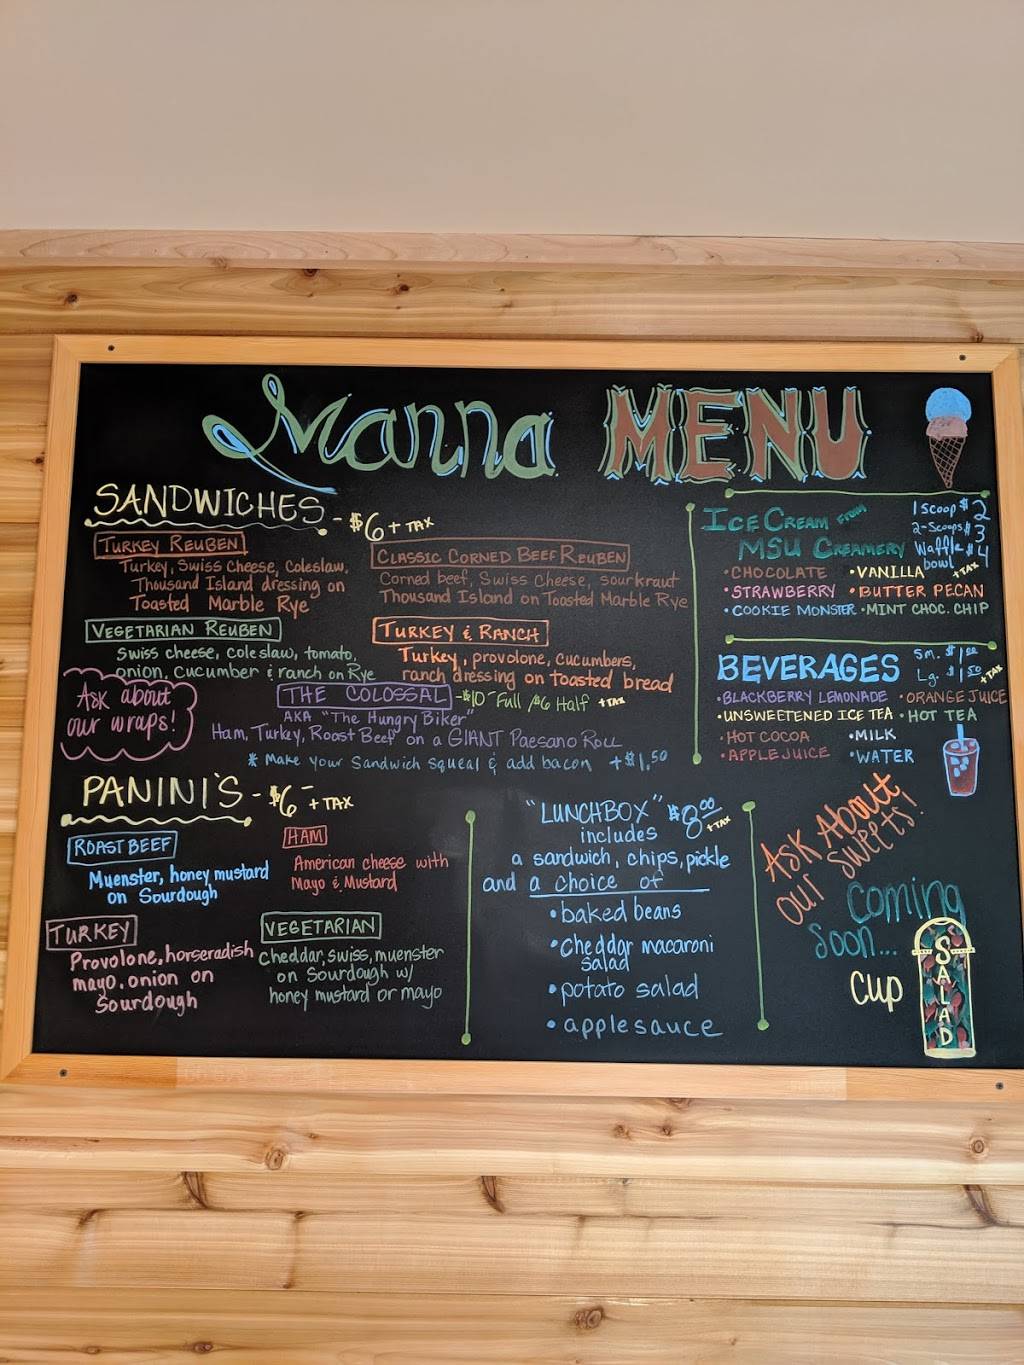 Manna MENU
SANDWICHES - $6 + TAX
TURKEY REUBEN
Turkey, Swiss Cheese, Coleslaw,
Thousand Island dressing on
Toasted Marble Rye
CLASSIC CORNED BEEF REUBEN
Corned beef, Swiss Cheese, sourkraut
Thousand Island on Toasted Marble Rye
VEGETARIAN REUBEN
Swiss cheese, coleslaw, tomato,
onion, cucumber & ranch on Rye
TURKEY & RANCH
Turkey, provolone, cucumbers,
ranch dressing on toasted bread
Ask about
our wraps!
THE COLOSSAL - $10 Full / $6 Half + TAX
AKA "The Hungry Biker"
Ham, Turkey, Roast Beef on a GIANT Paesano Roll
* Make your Sandwich squeal & add bacon + $1.50
PANINI'S - $6 + TAX
ROAST BEEF
Muenster, honey mustard
on Sourdough
HAM
American cheese with
Mayo & Mustard
TURKEY
Provolone, horseradish
mayo, onion on
Sourdough
VEGETARIAN
Cheddar, swiss, muenster
on Sourdough w/
honey mustard or mayo
"LUNCHBOX" $8.00 + TAX
includes
a sandwich, chips, pickle
and a choice of
• baked beans
• Cheddar macaroni
salad
• potato salad
• applesauce
ICE CREAM FROM
MSU CREAMERY
1 Scoop $2
2-Scoops $3
Waffle bowl $4
+ TAX
• CHOCOLATE • VANILLA
• STRAWBERRY • BUTTER PECAN
• COOKIE MONSTER • MINT CHOC. CHIP
BEVERAGES
Sm. $1.00
Lg. $1.50
+ TAX
• BLACKBERRY LEMONADE • ORANGE JUICE
• UNSWEETENED ICE TEA • HOT TEA
• HOT COCOA • MILK
• APPLE JUICE • WATER
ASK ABOUT
our sweets!
Coming
Soon...
Cup
SALAD